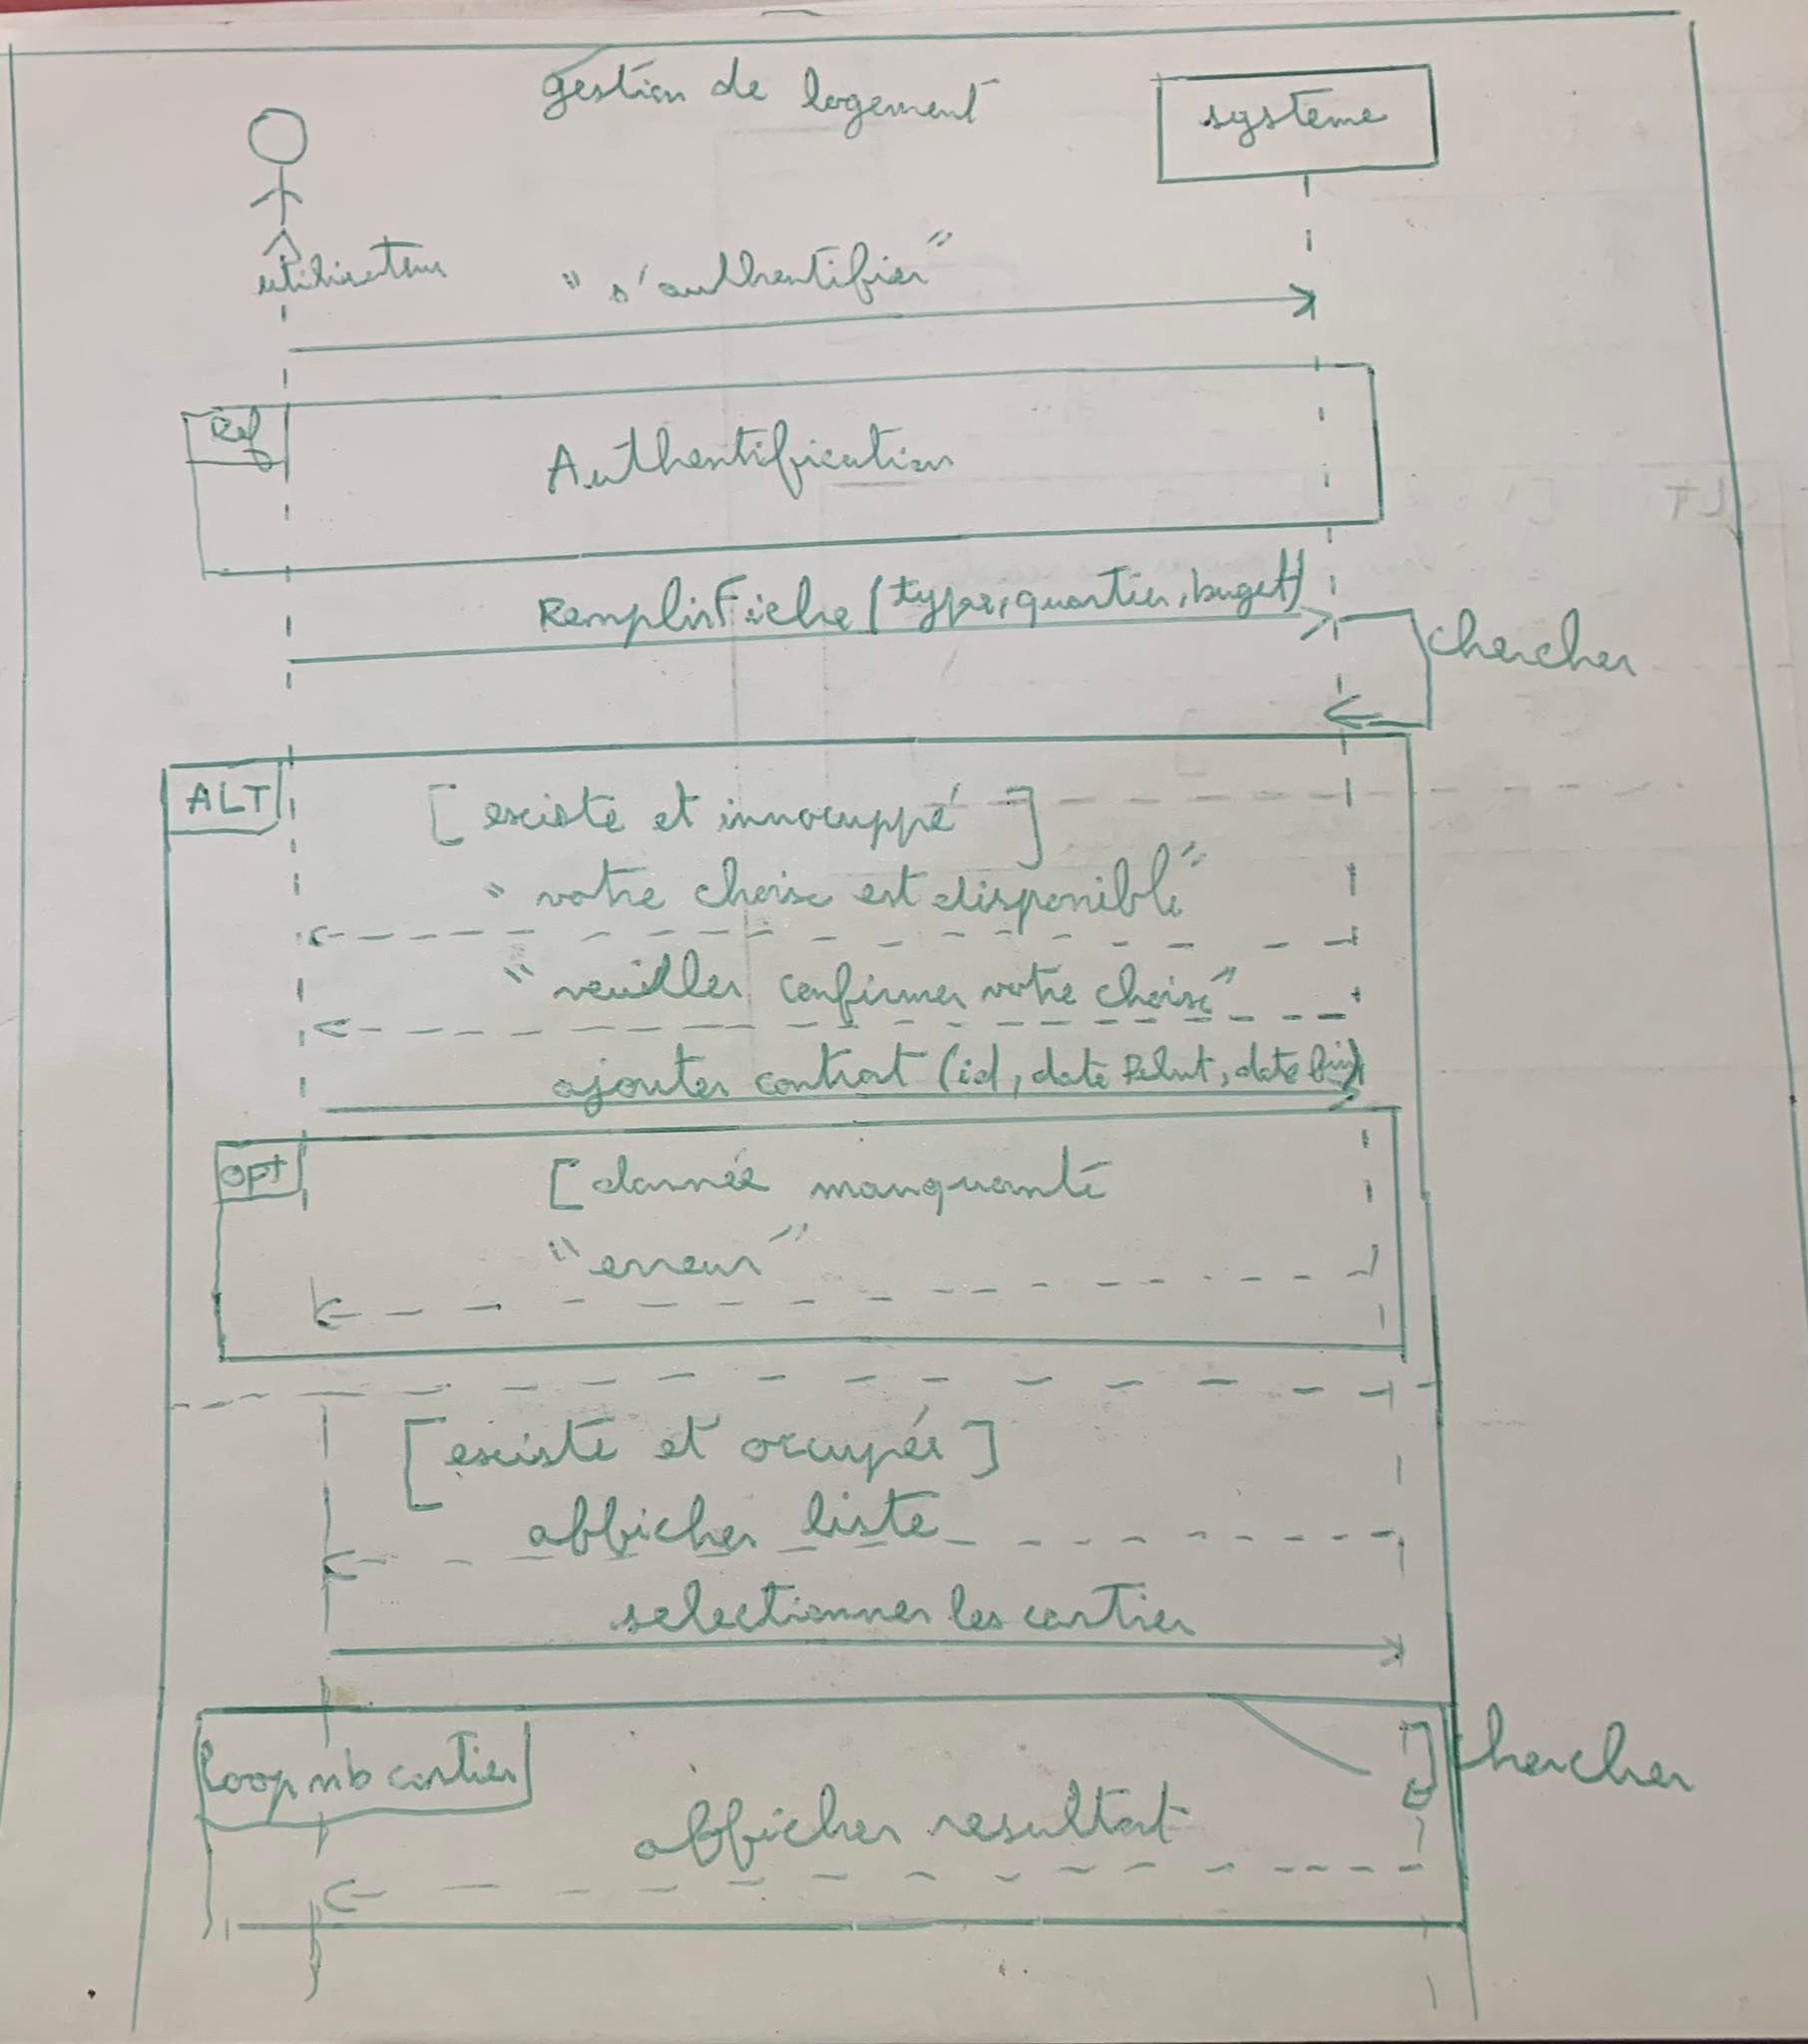 gestion de logement
système
utilisateur
"s'authentifier"
Ref
Authentification
RemplirFiche (type, quartier, buget)
chercher
ALT
[existe et innocuppé]
"votre choix est disponible"
"veuiller confirmer votre choix"
ajouter contrat (id, date Début, date fin)
OPT
[donnée manquante
"erreur"
[existe et occupée]
afficher liste
selectionner les cartier
Loop nb cartier
chercher
afficher resultat